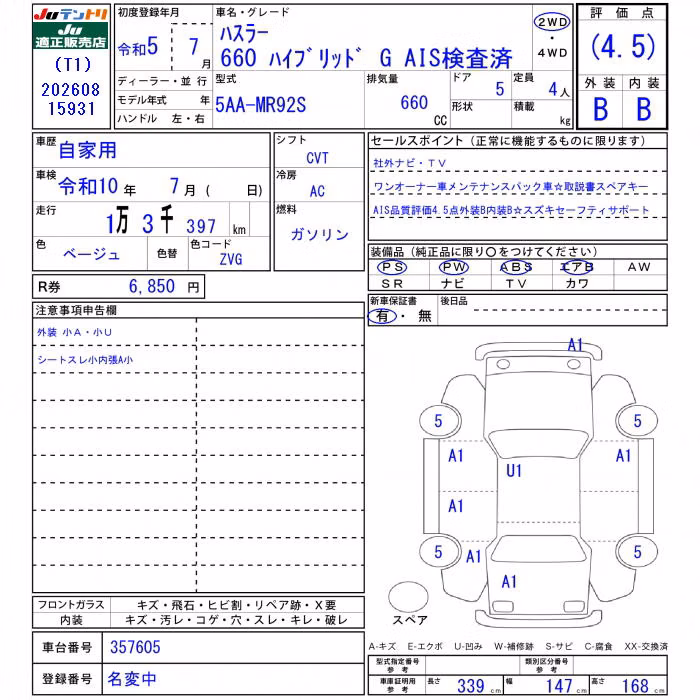 Juテントリ
Ju
適正販売店
(T1)
202608
15931
初度登録年月
令和5 7 月
車名・グレード
ハスラー
660 ハイブリッド G AIS検査済
2WD
・
4WD
評 価 点
(4.5)
外 装 内 装
B B
ディーラー・並 行
モデル年式 年
ハンドル 左・右
型式
5AA-MR92S
排気量
660 CC
ドア 5
形状
定員 4 人
積載 kg
車歴 自家用
車検 令和10 年 7 月 ( 日)
走行 1万 3千 397 km
色 ベージュ 色替 色コード ZVG
シフト
CVT
冷房
AC
燃料
ガソリン
セールスポイント (正常に機能するものに限ります)
社外ナビ・TV
ワンオーナー車メンテナンスパック車☆取説書スペアキー
AIS品質評価4.5点外装B内装B☆スズキセーフティサポート
装備品 (純正品に限り〇をつけてください)
PS PW ABS エアB AW
SR ナビ TV カワ
R券 6,850 円
新車保証書
有・無
後日品
注意事項申告欄
外装 小A・小U
シートスレ小内張A小
A1
5 5
A1 A1
U1
A1
5 5
A1
A1
スペア
フロントガラス キズ・飛石・ヒビ割・リペア跡・X要
内装 キズ・汚レ・コゲ・穴・スレ・キレ・破レ
車台番号 357605
登録番号 名変中
A-キズ E-エクボ U-凹み W-補修跡 S-サビ C-腐食 XX-交換済
型式指定番号
参 考
類別区分番号
参 考
車庫証明用
参 考
長さ 339 cm 幅 147 cm 高さ 168 cm